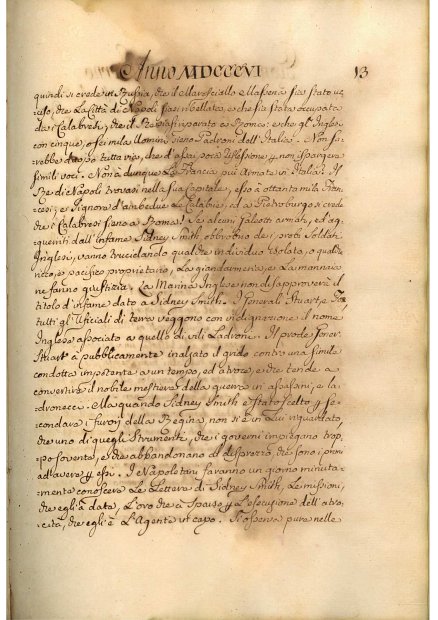 Anno MDCCCVI 13
quindi si crede in Russia, che il Maresciallo Massena sia stato uc-
ciso, che La Città di Napoli siasi ribellata, e che sia stata occupata
da i Calabresi; che il Rè sia riparato a Roma; e che gl' Inglesi
con cinque, o sei mila Uomini sieno Padroni dell' Italia. Non fa-
rebbe d'uopo tuttavia, che d'assai poca riflessione per non spargere
simili voci. Non à dunque La Francia più Armate in Italia? Il
Rè di Napoli trovasi nella sua Capitale; esso à ottanta mila Fran-
cesi; e Signore d'ambedue Le Calabrie, ed a Pietroburgo si crede
che i Calabresi sieno a Roma! Se alcuni Galeotti armati, ed ag-
guerriti dall' infame Sidney Smith obbrobrio dei probi Soldati
Inglesi, vanno trucidando qualche individuo isolato, o qualche
ricco, e pacifico proprietario, La giandarmeria, e La mannaia
ne fanno giustizia. La Marina Inglese non disapproverà il
titolo d'infame dato a Sidney Smith. I Generali Stuart, e Fox
tutti gli Ufficiali di terra veggono con indignazione il nome
Inglese associato a quello di vili Ladroni. Il prode General
Stuart à pubblicamente inalzato il grido contro una simile
condotta impotente a un tempo, ed atroce, e che tende a
convertire il nobile mestiere della guerra in assassinj, e la-
dronecci. Ma quando Sidney Smith è stato scelto per se-
condare i furori della Regina, non si è in Lui riguardato,
che uno di quegli Strumenti, che i governi impiegano trop-
po sovente, e che abbandonano al disprezzo, che sono i primi
ad avere per essi. I Napoletani faranno un giorno minuta-
mente conoscere Le Lettere di Sidney Smith, Le missioni,
che egli à date, L'oro che à sparso per L'esecuzione dell' atro-
cità, che egli è L'Agente in capo. Si osserva pure nelle